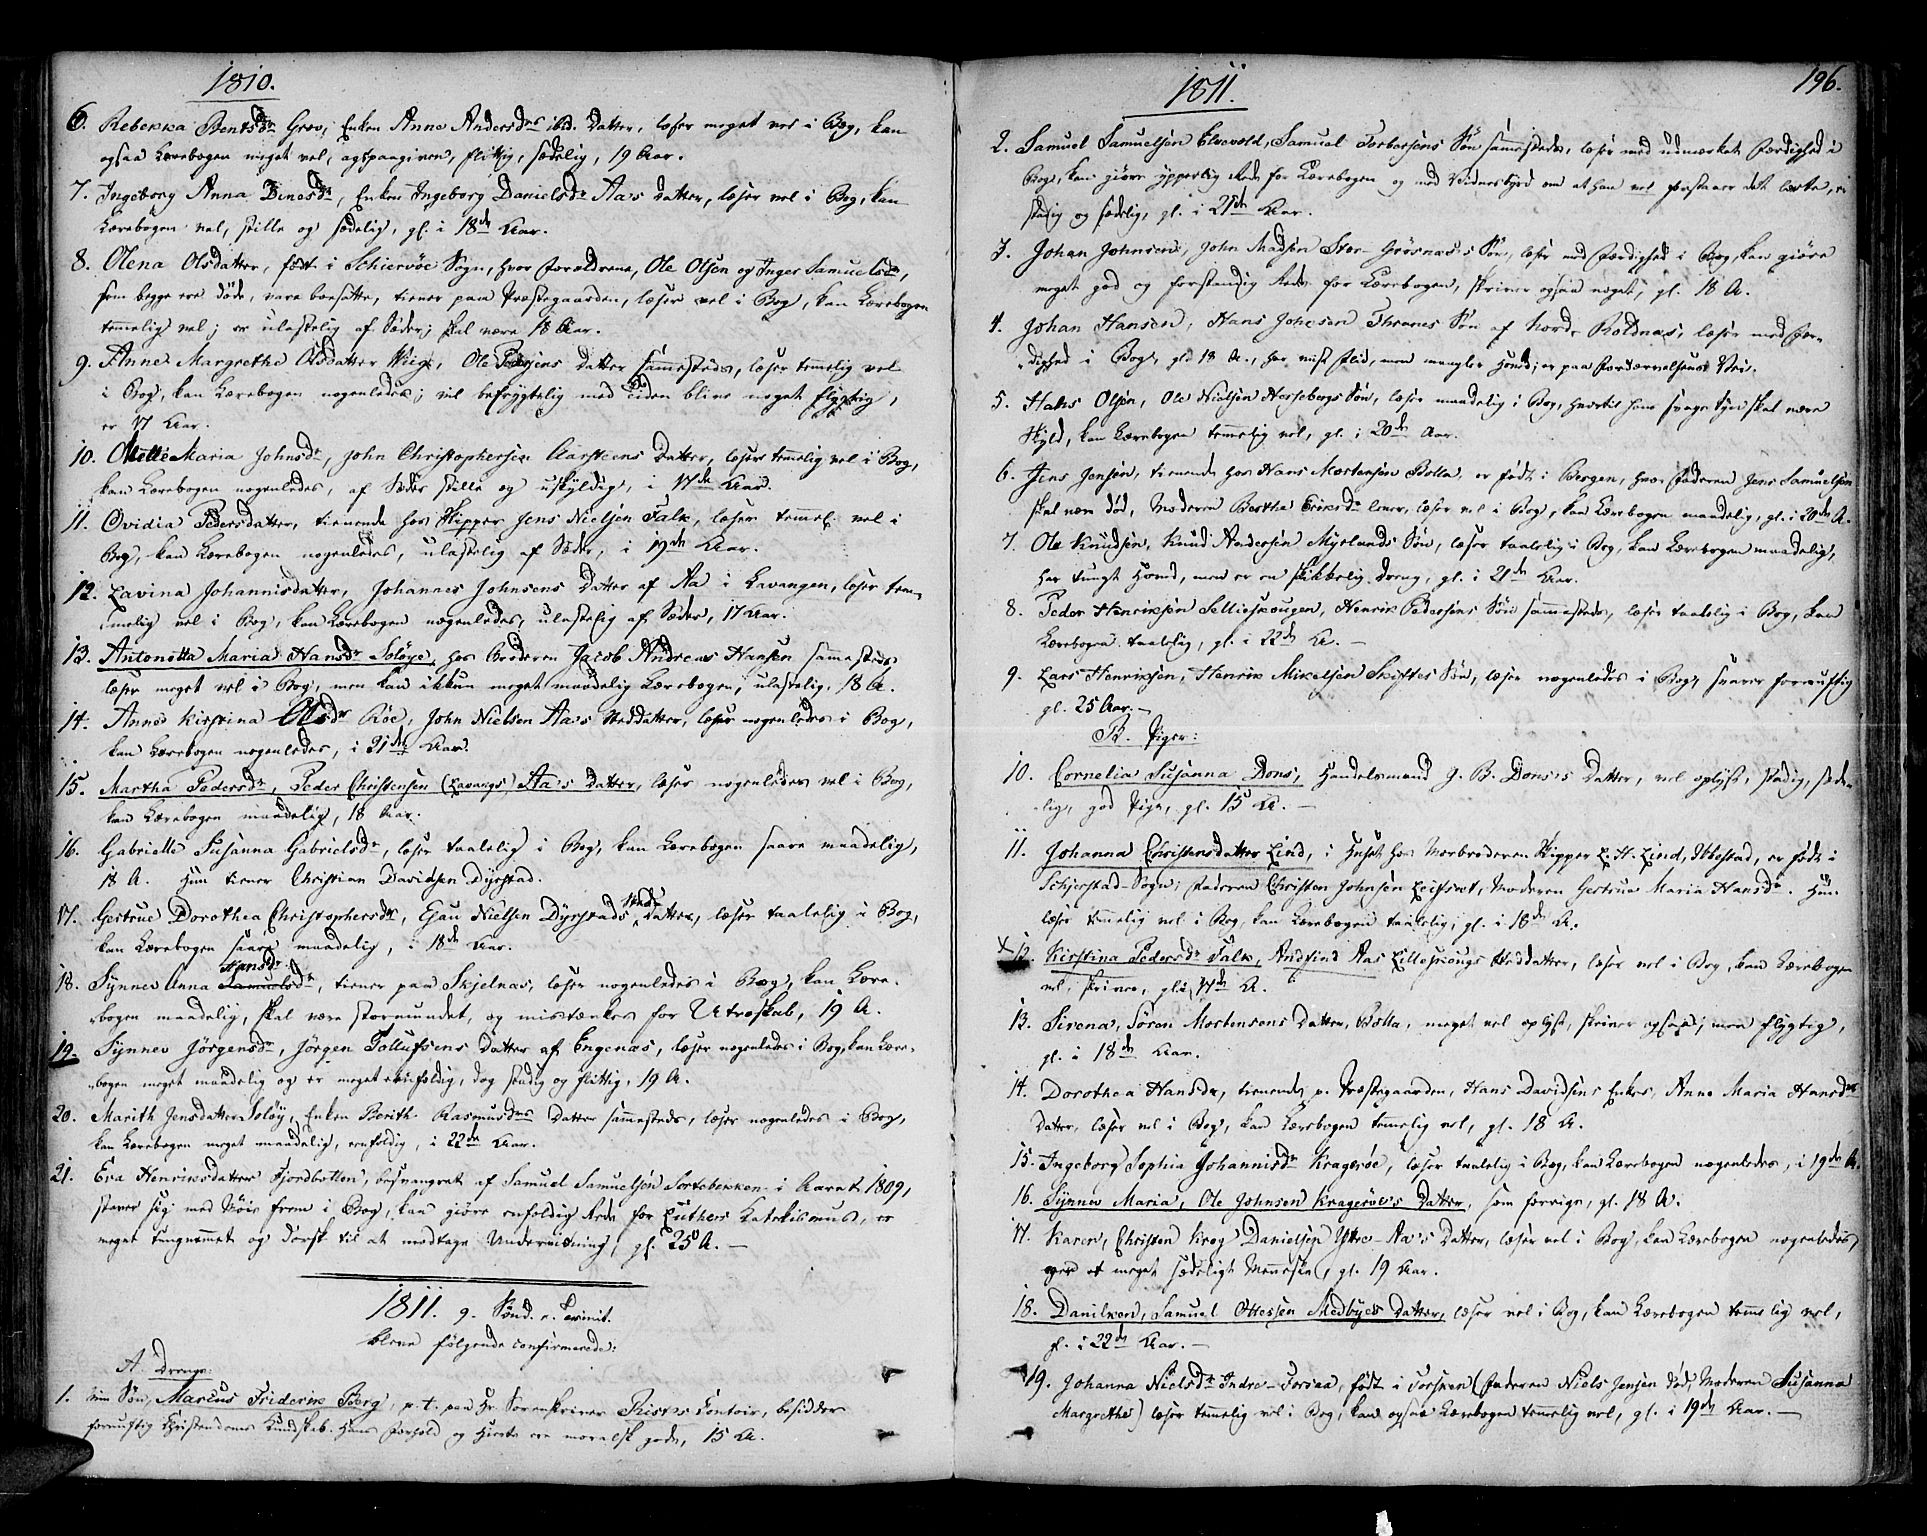 1810.
6. Rebekka Bentsdr Grov, Enken Anne Andersdrs ibid. Datter, læser meget vel i Bog, kan
ogsaa Lærebogen meget vel, agtpaagiven, flittig, sædelig, 19 Aar.
7. Ingeborg Anna Dinesdr, Enken Ingeborg Danielsdr Aa's Datter, læser vel i Bog, kan
Lærebogen vel, stille og sædelig, gl. i 18de Aar.
8. Olena Olsdatter, født i Schiervøe Sogn, hvor Forældrene, Ole Olsen og Inger Samuelsdr,
som begge ere døde, vare bosatte, tiener paa Præstegaarden, læser vel i Bog, kan Lærebogen
temmelig vel; er ulastelig af Sæder; skal være 18 Aar.
9. Anne Margrethe Olsdatter Viig, Ole Pedersens Datter sammesteds, læser temelig vel
i Bog, kan Lærebogen nogenledes; vil befrygtelig med Tiden blive noget flygtig,
er 17 Aar.
10. Maria Johnsdr, John Christophersen Aarsteens Datter, læser temelig vel i Bog,
kan Lærebogen nogenledes, af Sæder stille og uskyldig, i 17de Aar.
11. Ovidia Pedersdatter, tienende hos Skipper Jens Nielsen Falk, læser temmel. vel i
Bog, kan Lærebogen nogenledes, ulastelig af Sæder, i 19de Aar.
12. Lavina Johannisdatter, Johannes Johnsens Datter af Aa i Lavangen, læser tem-
melig vel i Bog, kan Lærebogen nogenledes, ulastelig af Sæder, 17 Aar.
13. Antonetta Maria Hansdr Soløye, hos Broderen Jacob Andreas Hansen sammesteds
læser meget vel i Bog, men kan ikkun meget maadelig Lærebogen, ulastelig, 18 A.
14. Anne Kirstina Olsdr Røe, John Nielsen Aa's Steddatter, læser nogenledes i Bog,
kan Lærebogen nogenledes, i 21de Aar.
15. Martha Pedersdr, Peder Christensen (Lavangs) Aa's Datter, læser nogenledes vel i Bog,
kan Lærebogen maadelig, 18 Aar.
16. Gabrielle Susanna Gabrielsdr, læser taalelig i Bog, kan Lærebogen saare maadelig,
18 A. Hun tiener Christian Davidsen Dyrstad.
17. Gertrue Dorothea Christophersdr, Nielsen Dyrstads Sted Datter, læser taalelig i Bog,
kan Lærebogen saare maadelig, i 18de Aar.
18. Synnev Anna Samuelsdr Hansdr, tiener paa Skjelnæs, læser nogenledes i Bog, kan Lære-
bogen maadelig, skal være stormundet, og mistænkes for Utroskab, 19 A.
19. Synnev Jørgensdr, Jørgen Tollufsens Datter af Engenæs, læser nogenledes i Bog, kan Lære-
bogen meget maadelig og er meget eenfoldig, dog stadig og flittig, 19 A.
20. Marith Jensdatter Soløy, Enken Berith Rasmusdrs Datter sammesteds, læser nogenledes i Bog,
kan Lærebogen meget maadelig, eenfoldig, i 22de Aar.
21. Eva Henriksdatter Fjordbotten, besvangret af Samuel Samuelsen Sortebekken i Aaret 1809,
staver sig med Møie frem i Bog, kan giøre eenfoldig Rede for Luthers Katekismus, er
meget tungnemmet og dorsk til at modtage Underviisning, gl. 25 A. —
1811. 9. Sønd. p. Trinit.
bleve følgende confirmerede:
A. Drenge.
1. Min Søn, Marcus Friderik Borg, p.t. paa Hr Sorenskriver Rist's Contoir, besidder
fornuftig Christendoms Kundskab. Hans Forhold og Hierte ere moralsk gode, 15 A.
1811.
196.
2. Samuel Samuelsen Elvevold, Samuel Torbersens Søn sammesteds, læser med udmærket Færdighed i
Bog, kan giøre ypperlig Rede for Lærebogen og med Vidnesbyrd om at han vel forstaaer det lærte,
stadig og sædelig, gl. i 21de Aar.
3. Johan Johnsen, John Madsen Stor-Grøsnæs's Søn, læser med Færdighed i Bog, kan giøre
meget god og forstandig Rede for Lærebogen, skriver ogsaa noget, gl. 18 A.
4. Johan Hansen, Hans Johesen Thranes Søn af Nordr Roldnæs, læser med Fær-
dighed i Bog, gl. 18 A., har viist Flid, men mangler Hoved; er paa Fordærvelsens Vei.
5. Hans Olsen, Ole Nielsen Hessebergs Søn, læser maadelig i Bog, hvortil hans svage Syn skal være
Skyld, kan Lærebogen temmelig vel, gl. i 20de Aar.
6. Jens Jensen, tienende hos Hans Mortensen Bolla, er født i Bergen, hvor Faderen Jens Samuelsen
skal være død, Moderen Berthe Eriksdr lever, læser vel i Bog, kan Lærebogen maadelig, gl. i 20de A.
7. Ole Knudsen, Knud Andersen Myrlands Søn, læser taalelig i Bog, kan Lærebogen maadelig,
har tungt Hoved, men er en skikkelig Dreng, gl. i 21de Aar.
8. Peder Henriksen Sellieskougen, Henrik Pedersens Søn sammesteds, læser taalelig i Bog, kan
Lærebogen taalelig, gl. i 22de A. —
9. Lars Henriksen, Henrik Mikelsen Skiftes Søn, læser nogenledes i Bog, svarer fornuftig
gl. 25 Aar. —
B. Piger:
10. Cornelia Susanna Dons, Handelsmand G. B. Dons's Datter, vel oplyst, stadig, sæde-
lig, god Pige, gl. 15 A. —
11. Johanna Christensdatter Lind, i Huset hos Morbroderen Skipper L. H. Lind, Ibbestad, er født i
Schjerstad-Sogn; Faderen Christen Johnsen, Moderen Gertrue Maria Hansdr. Hun
læser temmelig vel i Bog, kan Lærebogen taalelig, gl. i 18de A.
x 12. Kirstina Pedersdr Falk, Andfind Aas Lilleskougs Steddatter, læser vel i Bog, kan Lærebogen
vel, skriver, gl. i 17de A.
13. Sirena, Søren Mortensens Datter, Bolla, meget vel oplyst, skriver ogsaa; men flygtig,
gl. i 18de Aar.
14. Dorothea Hansdr, tienende p. Præstegaarden, Hans Davidsens Enkes, Anne Maria Hansdrs
Datter, læser vel i Bog, kan Lærebogen temmelig vel, gl. 18 A.
15. Ingeborg Sophia Johannisdr Kragerøe, læser taalelig i Bog, kan Lærebogen nogenledes, i 19de A.
16. Synnev Maria, Ole Johnsen Kragerøe's Datter, som forrige, gl. 18 A.
17. Karen, Christen Krog Danielsen Yttre-Aa's Datter, læser vel i Bog, kan Lærebogen nogenledes,
et meget sædeligt Menneske, gl. 19 Aar.
18. Danikven, Samuel Ottesen Medbyes Datter, læser vel i Bog, kan Lærebogen temmelig vel,
gl. i 22de Aar. —
19. Johanna Nielsdr Indre-Forsaa, født i Torsken (Faderen Niels Jensen død, Moderen Susanna
Margrethe) læser temmelig vel i Bog, kan ogsaa Lærebogen temmelig vel, gl. i 19de Aar. —